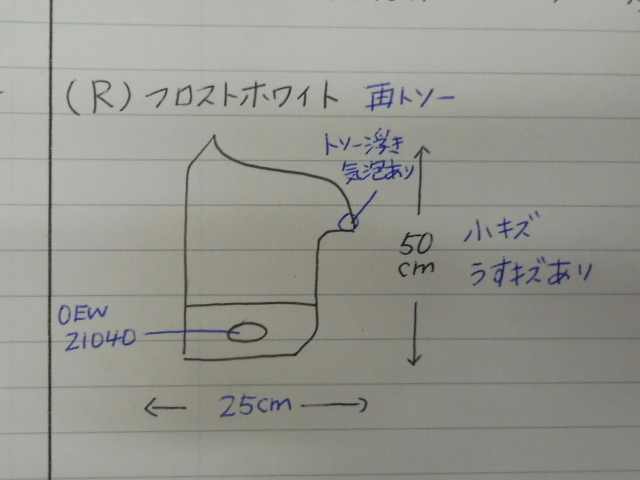 (R) フロストホワイト 再トソー
トソー浮き
気泡あり
50
cm
小キズ
うすキズあり
OEW
21040
25cm